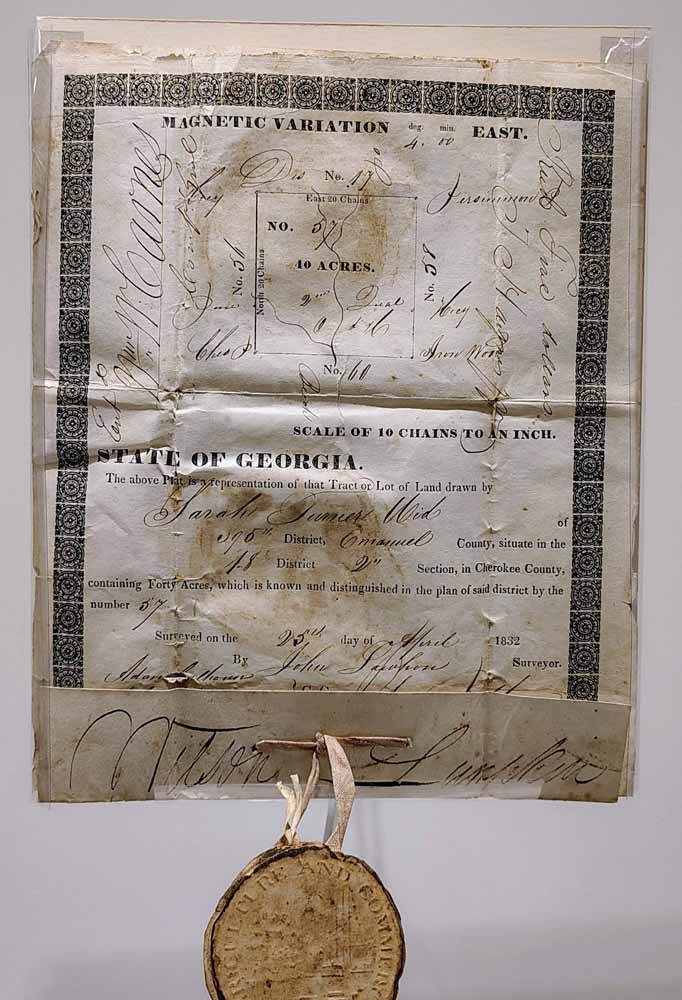 MAGNETIC VARIATION deg. min. EAST.
4. 00
Dis No. 17
Persimmon
East 20 Chains
NO. 57
40 ACRES.
No. 56
North 20 Chains
No.
2nd Qual
Hicy
Ches
Iron Wood
No. 60
SCALE OF 10 CHAINS TO AN INCH.
STATE OF GEORGIA.
The above Plat is a representation of that Tract or Lot of Land drawn by
Sarah Turner Wid
of
395th District, Emanuel County, situate in the
18th District 2nd Section, in Cherokee County,
containing Forty Acres, which is known and distinguished in the plan of said district by the
number 57
Surveyed on the 25th day of April 1832
By John Surveyor.
Wilson Lumpkin
W. Carnes
dollars
CULTURE AND COMMER